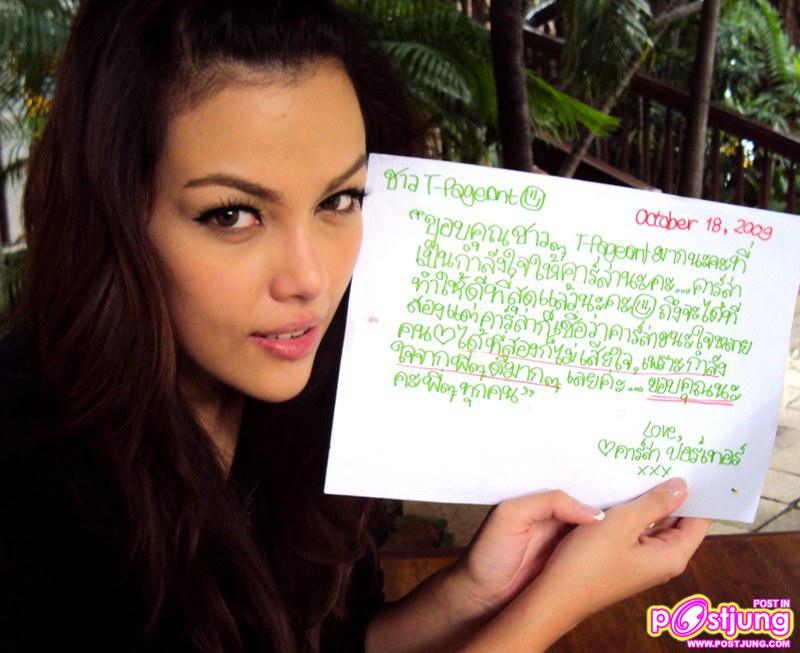 ชาว T-Pageant
October 18, 2009
"ขอบคุณชาวๆ T-Pageant มากนะคะที่
เป็นกำลังใจให้คาร์ล่านะคะ... คาร์ล่า
ทำให้ดีที่สุดแล้วนะคะ ถึงจะได้ที่
สองแต่คาร์ล่าก็เชื่อว่าคาร์ล่าชนะใจหลาย
คน♡ได้ที่สองก็ไม่เสียใจ, เพราะกำลัง
ใจจากพี่ๆดีมากๆ เลยค่ะ... ขอบคุณนะ
คะพี่ๆทุกคน"
Love,
♡คาร์ล่า ปอร์เทอร์
xxx
POST IN
postjung
WWW.POSTJUNG.COM